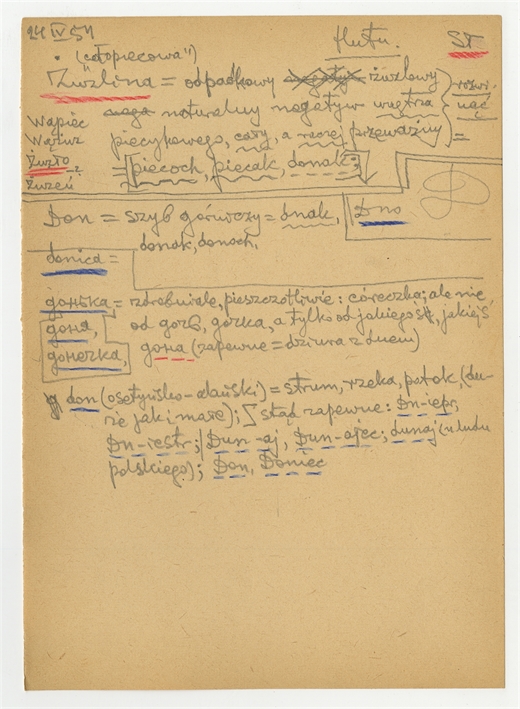 24 IV 54
hutn. ST
• ("całopiecowa")
Żużlina = odpadkowy żużlowy rozwi-
nąć
naturalny negatyw wnętrza
Wapień
Węziuz
Żużło
Żużeń
piecykowego, cały, a raczej przeważny =
= piecoch, piecak, donak;
Don = szyb górniczy = dnak, Dno
donak, donoch,
donica =
донька = zdrobniale, pieszczotliwie: córeczka; ale nie
доня, od дочь, дочка, a tylko od jakiegoś, jakiejś
донечка, доня (zapewne = dziura z dnem)
don (osetyńsko-alański) = strum, rzeka, potok, (du-
że jak i małe); stąd zapewne: Dn-iepr,
Dn-iestr; Dun-aj, Dun-ajec; dunaj (u ludu
polskiego); Don, Doniec